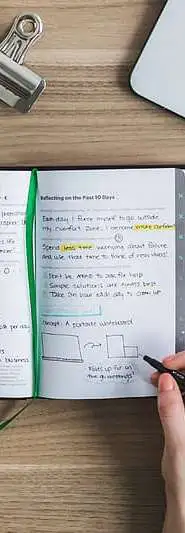 Reflecting on the Past 90 Days
Each day I force myself to go outside
my comfort zone, I become more confident
Spend less time worrying about failure
and use that time to think of new ideas!
Don't be afraid to ask for help
Simple solutions are always best
Take an hour each day to catch up
Concept: A portable whiteboard!
Folds up for on
the go meetings!
per day
business